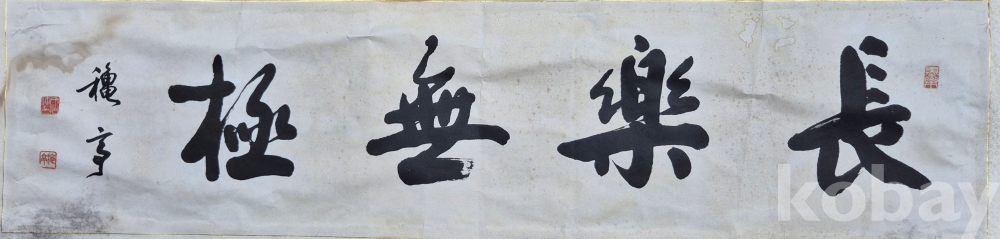 長樂無極
穐亭
kobay